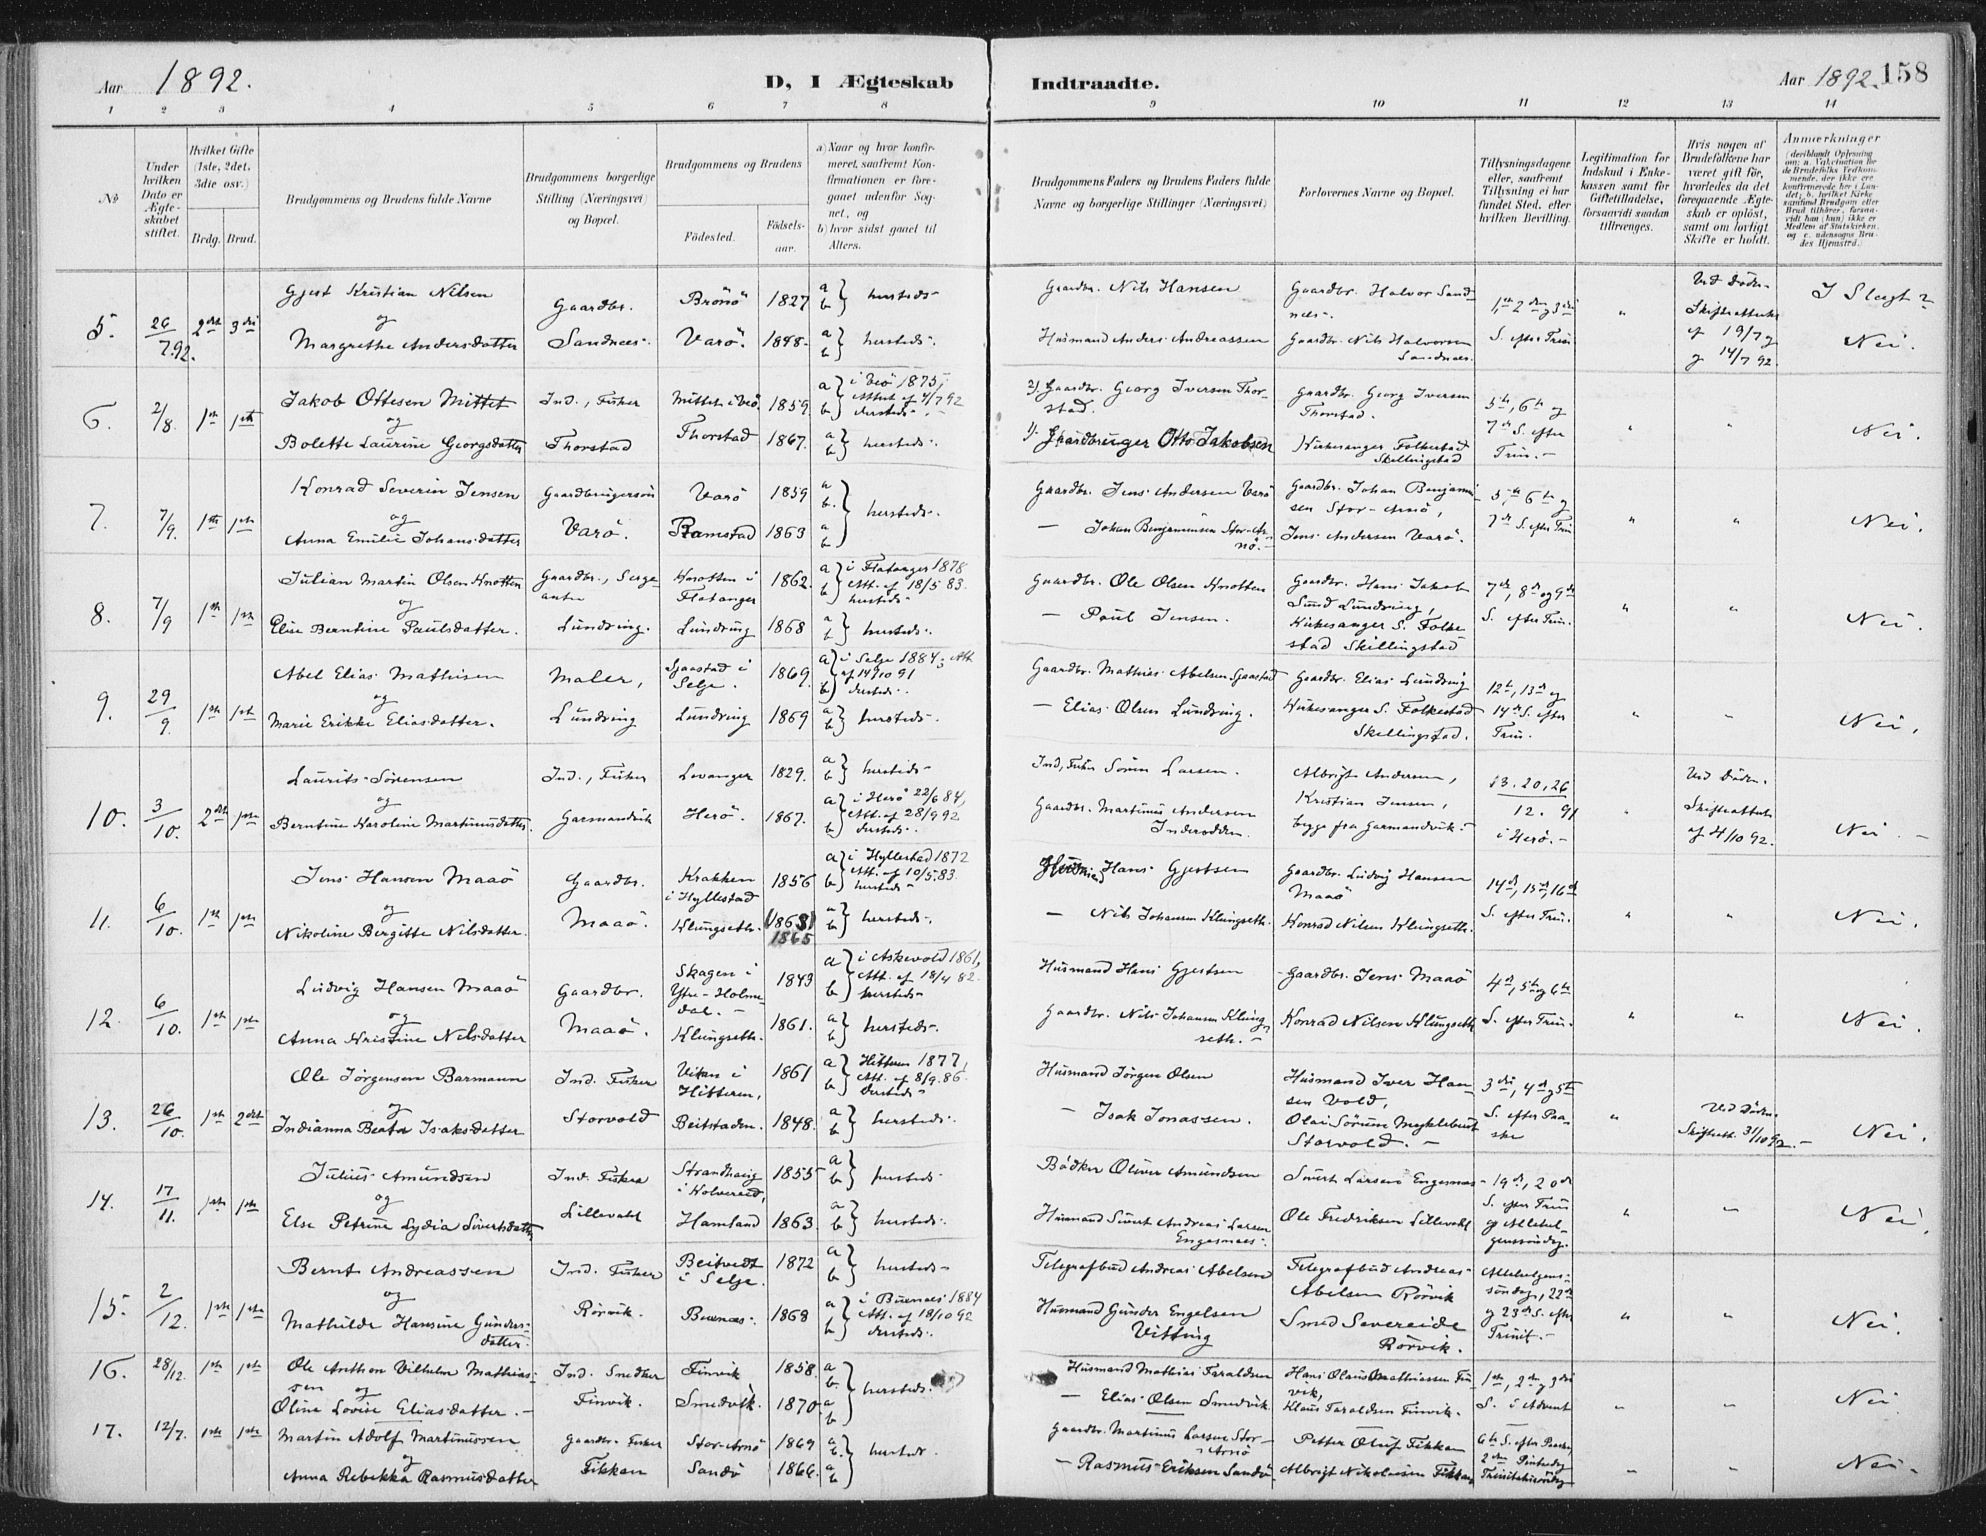 Aar 1892.
D, I Ægteskab Indtraadte.
Aar 1892. 158
1 2 3 4 5 6 7 8 9 10 11 12 13 14
№
Under hvilken Dato er Ægteskabet stiftet.
Hvilket Gifte (1ste, 2det, 3die osv.)
Brdg. Brud.
Brudgommens og Brudens fulde Navne
Brudgommens borgerlige Stilling (Næringsvei) og Bopæl.
Brudgommens og Brudens
Fødested. Fødselsaar.
a) Naar og hvor konfirmeret, saafremt Konfirmationen er foregaaet udenfor Sognet, og
b) hvor sidst gaaet til Alters.
Brudgommens Faders og Brudens Faders fulde Navne og borgerlige Stillinger (Næringsvei)
Forlovernes Navne og Bopæl.
Tillysningsdagene eller, saafremt Tillysning ei har fundet Sted, efter hvilken Bevilling.
Legitimation for Indskud i Enkekassen samt for Giftetilladelse, forsaavidt saadan tiltrænges.
Hvis nogen af Brudefolkene har været gift før, hvorledes da det foregaaende Ægteskab er opløst, samt om lovligt Skifte er holdt.
Anmærkninger
5. 26/7.92. 2det 3die
Gjest Kristian Nilsen
og
Margrethe Andersdatter
Gaardbr. Sandnes
Brönö 1827 a b } hersteds
Varö. 1848. a b } hersteds
Gaardbr. Nils Hansen
Husmand Anders Andreassen
Gaardbr. Halvor Sandnes
Gaardbr. Nils Halvorsen Sandnes
1ste 2den 3die S. efter Trin
"
Ved Døden Skifteattester af 19/7 og 14/7 92.
Nei.
6. 2/8. 1ste 1ste
Jakob Ottesen Mittet
og
Bolette Laurine Georgsdatter
Ind., Fisker Thorstad
Mittet i Veö. 1859. a b } i Veö 1875, Attest af 4/7 92 Dersteds
Thorstad 1867. a b } hersteds
2) Gaardbr. Georg Iversen Thorstad.
1) Gaardbruger Otto Jakobsen
Gaardbr. Georg Iversen Thorstad.
Kirkesanger Folkestad Skillingstad
5te, 6te og 7de S. efter Trin.
" "
Nei.
7. 7/9. 1ste 1ste
Konrad Severin Jensen
og
Anna Emilie Johansdatter
Gaardbrugersön Varö.
Varö 1859 a b
Ramstad 1863 a b } hersteds
Gaardbr. Jens Andersen Varö
— Johan Benjaminsen Stor-Arnö.
Gaardbr. Johan Benjaminsen Stor-Arnö,
Jens Andersen Varö.
5te, 6te og 7de S. efter Trin
" "
Nei.
8. 7/9 1ste 1ste
Julian Martin Olsen Knotten
og
Elise Berntine Paulsdatter.
Gaardbr., Sergeant Lundring.
Knotten i Flatanger 1862. a b } i Flatanger 1878 Att. af 18/5 83. hersteds
Lundring 1868 a b } hersteds
Gaardbr. Ole Olsen Knotten
— Paul Jensen.
Gaardbr. Hans Jakob Sund Lundring,
Kirkesanger S. Folkestad Skillingstad
7de, 8de og 9de S. efter Trin.
" "
Nei.
9. 29/9. 1ste 1ste
Abel Elias Mathisen
og
Marie Erikke Eliasdatter.
Maler, Lundring
Gaastad i Selje. 1869. a b } i Selje 1884; Att. af 14/10 91 Dersteds
Lundring 1869 a b } hersteds
Gaardbr. Mathias Abelsen Gaastad
— Elias Olsen Lundring.
Gaardbr. Elias Lundring
Kirkesanger S. Folkestad Skillingstad.
12te, 13de og 14de S. efter Trin.
" "
Nei.
10. 3/10. 2det 1ste
Laurits Sörensen
og
Berntine Karoline Martinusdatter.
Ind., Fisker Garmandvik
Levanger 1829. a b } hersteds
Herö. 1867. a b } i Herö 22/6 84, Att. af 28/9 92 Dersteds
Ind. Fisker Sören Larsen.
Gaardbr. Martinus Andersen Inderodden.
Albrigt Andersen,
Kristian Jensen,
begge fra Garmandvik.
13. 20, 26 / 12. 91 i Herö.
"
Ved Döden. Skifteattest af 4/10 92.
Nei.
11. 6/10. 1ste 1ste
Jens Hansen Maaö
og
Nikoline Bergitte Nilsdatter.
Gaardbr. Maaö.
Krakken i Hyllestad 1856 a b } i Hyllestad 1872 Att. af 10/5.83. hersteds
Klungseth. (1863) 1865 a b } hersteds
Hans Gjertsen
— Nils Johansen Klungseth.
Gaardbr. Ludvig Hansen Maaö
Konrad Nilsen Klungseth.
14de, 15de, 16de S. efter Trin.
" "
Nei.
12. 6/10. 1ste 1ste
Ludvig Hansen Maaö
og
Anna Kristine Nilsdatter
Gaardbr. Maaö.
Skagen i Ytre-Holmedal. 1843 a b } i Askevold 1861, Att. af 18/4 82. hersteds
Klungseth. 1861. a b } hersteds
Husmand Hans Gjertsen
Gaardbr. Nils Johansen Klungseth.
Gaardbr. Jens Maaö
Konrad Nilsen Klungseth
4de, 5te og 6te S. efter Trin.
" "
Nei.
13. 26/10. 1ste 2det
Ole Jörgensen Barmann
og
Indianna Beata Isaksdatter
Ind. Fisker Storvold
Vikan i Hitteren, 1861 a b } Hitteren 1877, Att. af 8/9.86. Dersteds
Beitstaden. 1848. a b } hersteds
Husmand Jörgen Olsen
— Isak Jonassen.
Husmand Iver Hansen Vold,
Olai Sörum Myklebust Storvold.
3die, 4de og 5te S. efter Paaske
"
Ved Döden. Skifteatt. 31/10 92.
Nei.
14. 17/11. 1ste 1ste
Julius Amundsen
og
Else Petrine Lydia Sivertsdatter
Ind. Fisker Lillevahl
Strandhaug i Kolvereid, 1855 a b } hersteds
Hamland 1863. a b } hersteds
Bödker Oliver Amundsen
Husmand Sivert Andreas Larsen Engesnes
Sivert Larsen Engesnes
Ole Fredriksen Lillevahl
19de, 20de S. efter Trin og Allehelgenssöndag.
" "
Nei.
15. 2/12. 1ste 1ste
Bernt Andreassen
og
Mathilde Hansine Gundersdatter.
Ind. Fisker Rörvik.
Beitvedt i Selje. 1872 a b } hersteds
Buenæs. 1868 a b } i Buenæs 1884 Att. af 18/10 92 Dersteds
Telegrafbud Andreas Abelsen
Husmand Gunder Engelsen Vitting
Telegrafbud Andreas Abelsen Rörvik
Smed Severeide Rörvik.
Allehelgenssöndag, 22de og 23de S. efter Trinit.
" "
Nei.
16. 28/12. 1ste 1ste
Ole Anthon Vilhelm Mathiassen og
Oline Lovise Eliasdatter.
Ind. Snedker Finvik.
Finvik 1858. a b
Smedvik. 1870. a b } hersteds.
Husmand Mathias Taraldsen
— Elias Olsen Smedvik
Hans Olaus Mathiassen Finvik,
Klaus Taraldsen Finvik.
1ste, 2den og 3die S. i Advent
" "
Nei
17. 12/7. 1ste 1ste
Martin Adolf Martinussen
og
Anna Rebekka Rasmusdatter
Gaardbr. Fisker Fikkan
Stor-Arnö 1869 a b.
Sandö 1866. a b } hersteds.
Gaardbr. Martinus Larsen Stor-Arnö
— Rasmus Eriksen Sandö
Petter Oluf Fikkan
Albrigt Nikolaisen Fikkan
6te S. efter Paaske, 2den Pintsedag Trinitatissöndag
" "
Nei.